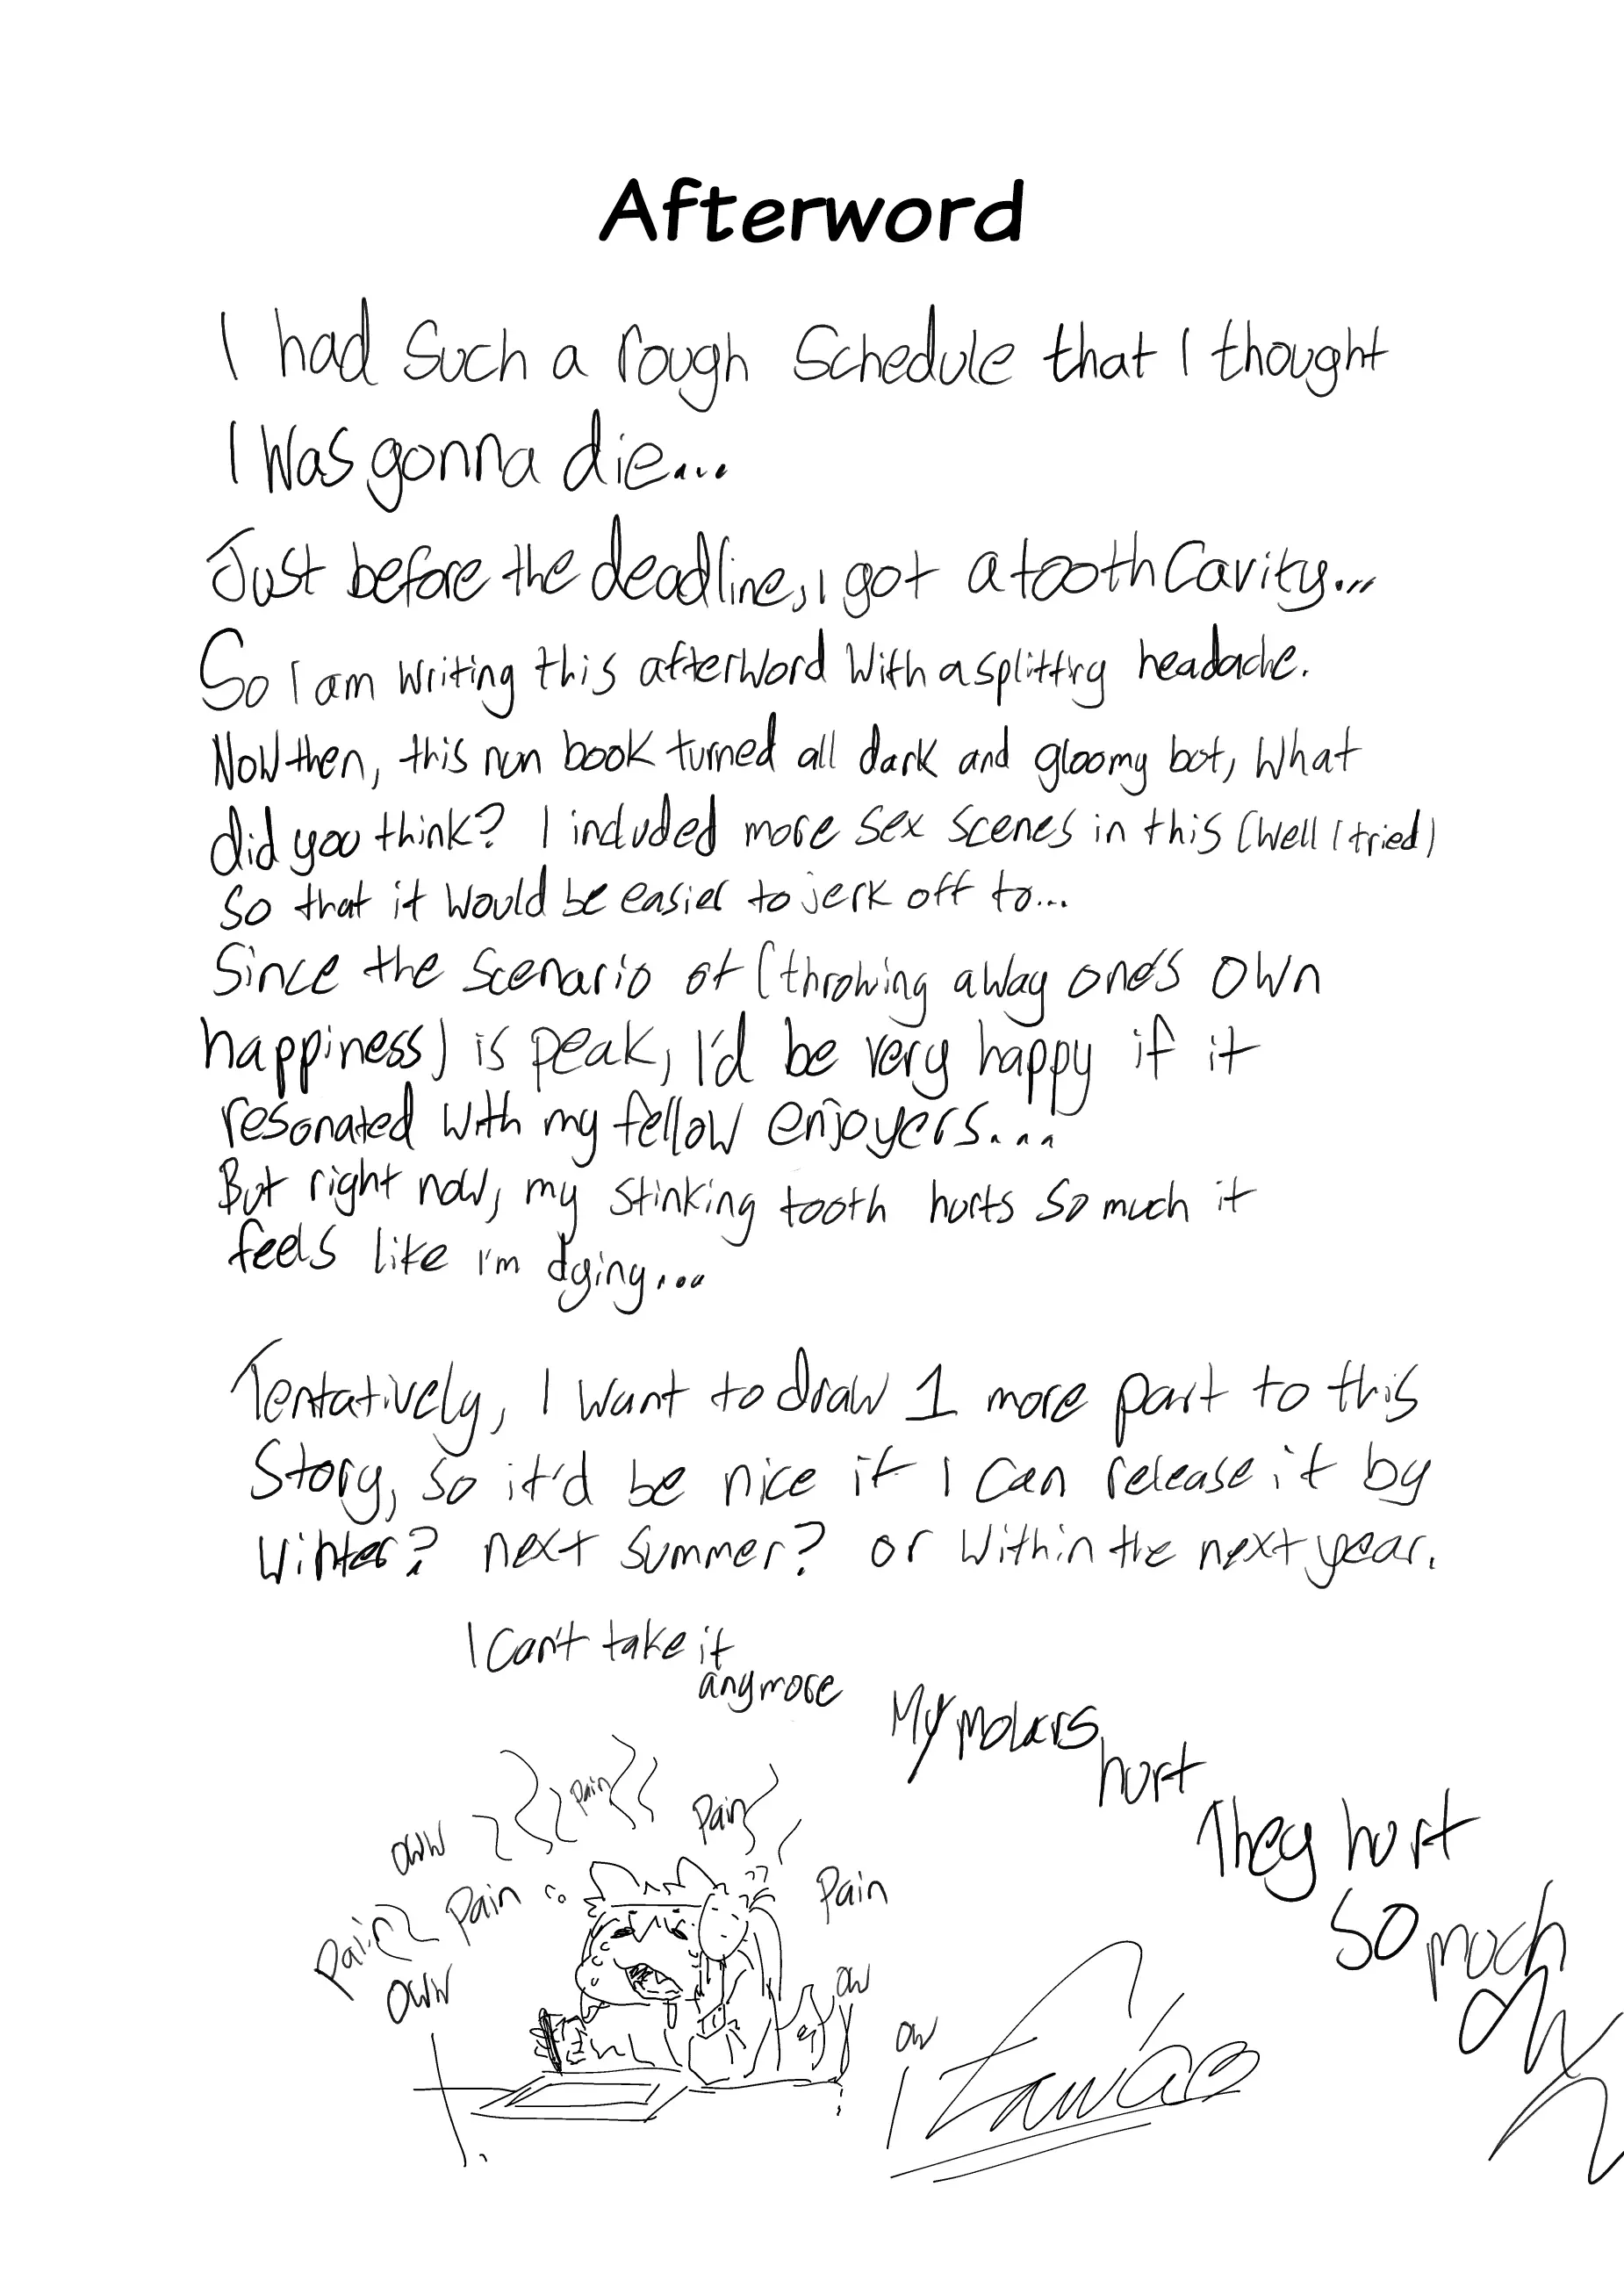 Afterword
I had such a rough schedule that I thought
I was gonna die...
Just before the deadline, I got a tooth cavity...
So I am writing this afterword with a splitting headache.
Now then, this nun book turned all dark and gloomy but, what
did you think? I included more sex scenes in this (well I tried)
so that it would be easier to jerk off to...
Since the scenario of (throwing away one's own
happiness) is peak, I'd be very happy if it
resonated with my fellow enjoyers...
But right now, my stinking tooth hurts so much it
feels like I'm dying...
Tentatively, I want to draw 1 more part to this
story, so it'd be nice if I can release it by
winter? next summer? or within the next year.
I can't take it
anymore
My molars
hurt
They hurt
so much
Pain
Pain
oww
Pain
Pain
Pain
oww
ow
ow